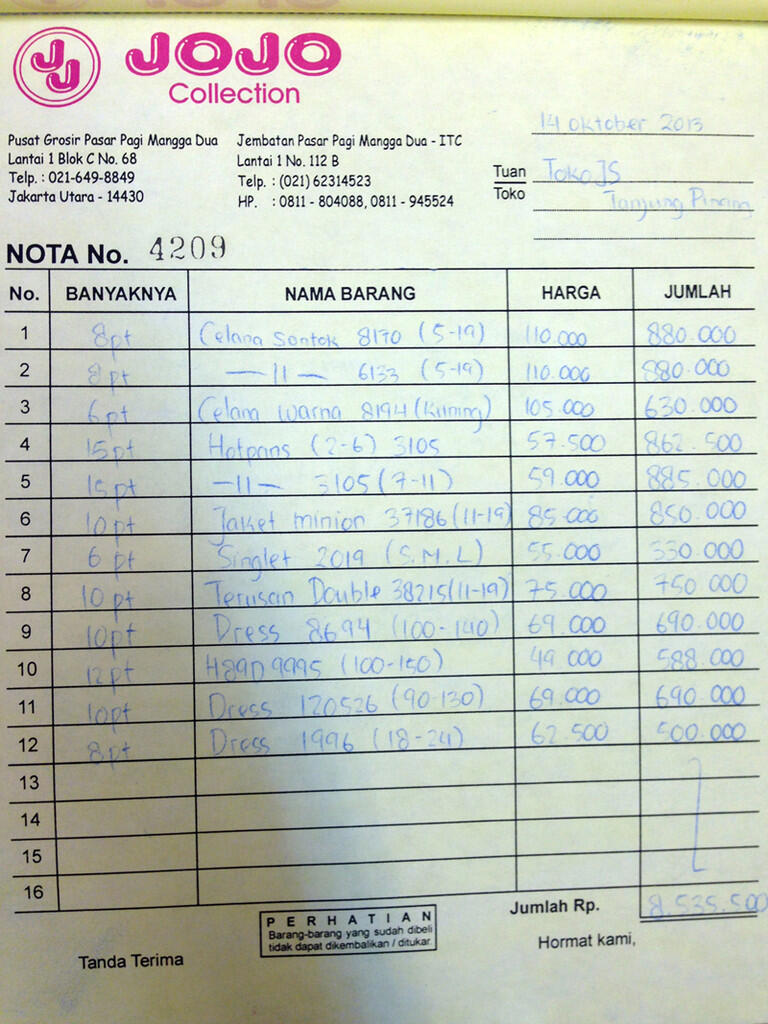 JJ
JOJO
Collection
Pusat Grosir Pasar Pagi Mangga Dua
Lantai 1 Blok C No. 68
Telp. : 021-649-8849
Jakarta Utara - 14430
Jembatan Pasar Pagi Mangga Dua - ITC
Lantai 1 No. 112 B
Telp. : (021) 62314523
HP. : 0811 - 804088, 0811 - 945524
14 oktober 2013
Tuan
Toko
Toko JS
Tanjung Pinang
NOTA No. 4209
No. BANYAKNYA NAMA BARANG HARGA JUMLAH
1 8pt Celana Sontok 8170 (5-19) 110.000 880.000
2 8pt —11— 6133 (5-19) 110.000 880.000
3 6pt Celana warna 8194 (Kuning) 105.000 630.000
4 15pt Hotpans (2-6) 3105 57.500 862.500
5 15pt —11— 3105 (7-11) 59.000 885.000
6 10pt Jaket minion 37186 (11-19) 85.000 850.000
7 6pt Singlet 2019 (S.M.L) 55.000 330.000
8 10pt Terusan Double 38215 (11-19) 75.000 750.000
9 10pt Dress 8694 (100-140) 69.000 690.000
10 12pt 9995 (100-150) 49.000 588.000
11 10pt Dress 120526 (90-130) 69.000 690.000
12 8pt Dress 1996 (18-24) 62.500 500.000
13
14
15
16
Jumlah Rp. 8.535.500
PERHATIAN
Barang-barang yang sudah dibeli
tidak dapat dikembalikan / ditukar.
Tanda Terima
Hormat kami,